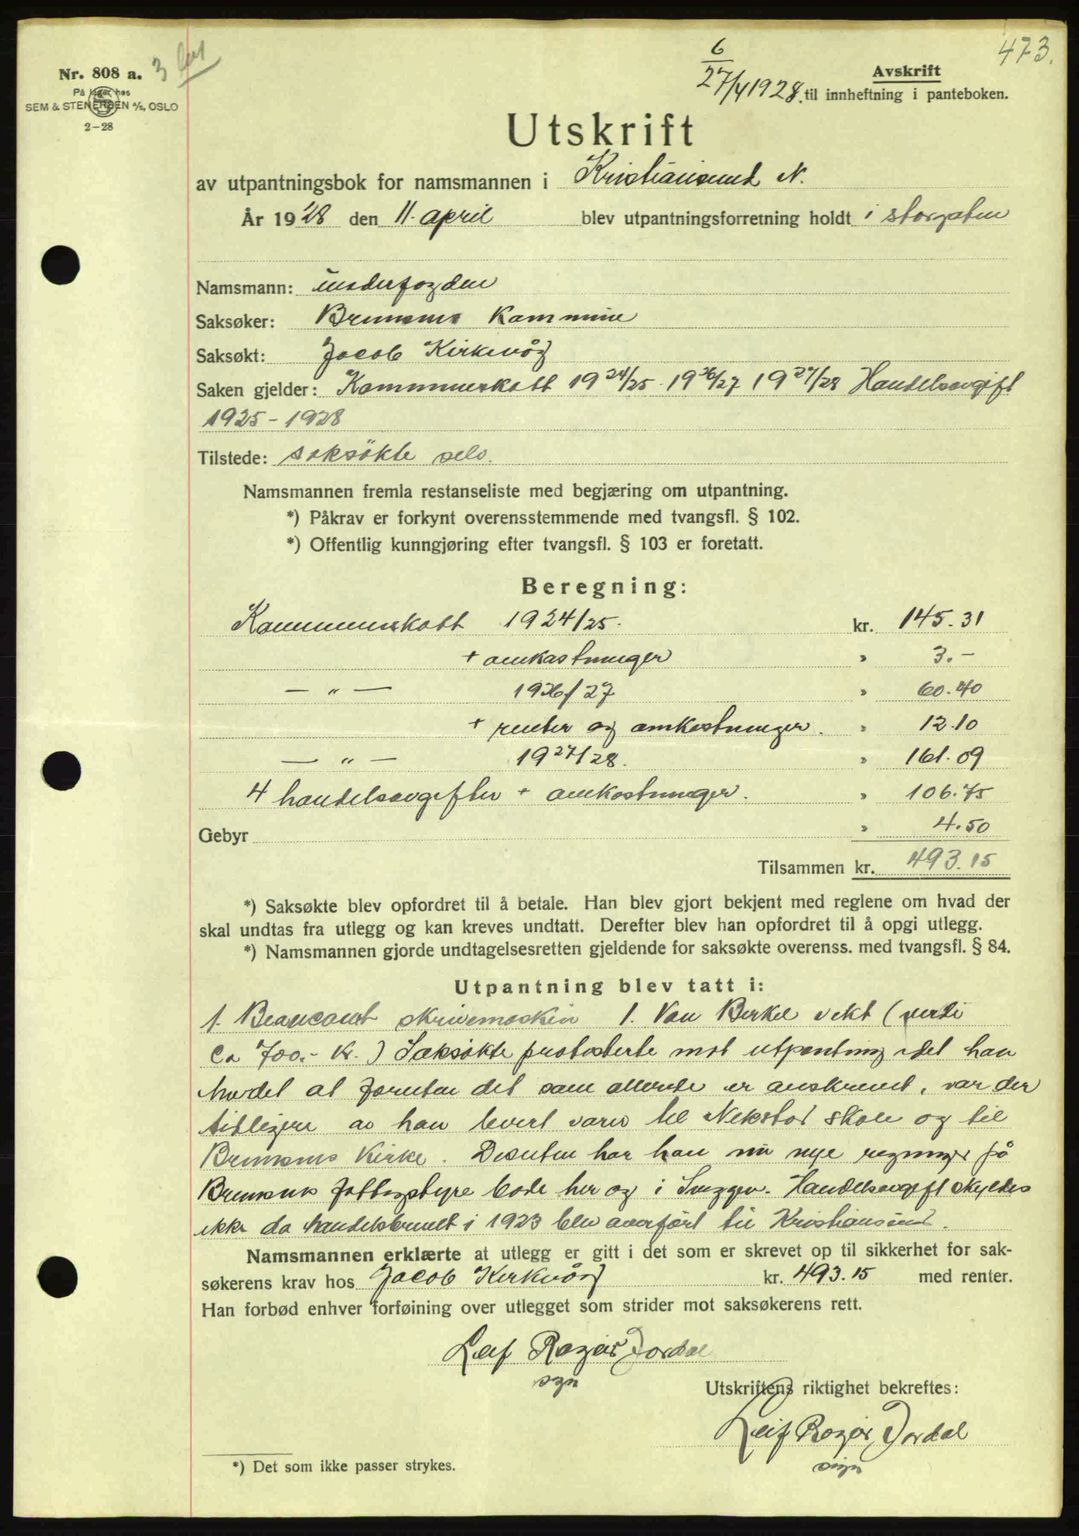 473.
6
27/4 1928.
Nr. 808 a.
3
På lager hos
SEM & STENERSEN A/S, OSLO
2-28
Avskrift
til innheftning i panteboken.
Utskrift
av utpantningsbok for namsmannen i Kristiansund N.
År 1928 den 11. april blev utpantningsforretning holdt i storgaten
Namsmann: underfogden
Saksøker: Bremsnes Kommune
Saksøkt: Jacob Kirkvåg
Saken gjelder: Kommuneskatt 1924/25 1926/27 1927/28 Handelsavgift
1925-1928
Tilstede: saksökte selv.
Namsmannen fremla restanseliste med begjæring om utpantning.
*) Påkrav er forkynt overensstemmende med tvangsfl. § 102.
*) Offentlig kunngjøring efter tvangsfl. § 103 er foretatt.
Beregning:
Kommuneskatt 1924/25. kr. 145.31
+ omkostninger " 3.-
— " — 1926/27 " 60.40
+ renter og omkostninger. " 12.10
— " — 1927/28. " 161.09
4 handelsavgifter + omkostninger. " 106.75
Gebyr " 4.50
Tilsammen kr. 493.15
*) Saksøkte blev opfordret til å betale. Han blev gjort bekjent med reglene om hvad der
skal undtas fra utlegg og kan kreves undtatt. Derefter blev han opfordret til å opgi utlegg.
*) Namsmannen gjorde undtagelsesretten gjeldende for saksøkte overenss. med tvangsfl. § 84.
Utpantning blev tatt i:
1. Beaucourt skrivemaskin 1. Van Berkel vekt (verdi
Ca 700.- Kr.) Saksøkte protesterte mot utpantning idet han
hevdet at foruten det som allerede er avskrevet, var der
tidligere av han levert varer til Nekstad skole og til
Bremsnes Kirke. Desuten har han nu nye regninger på
Bremsnes fattigstyre bode her og i . Handelsavgift skyldes
ikke da handelsbrevet i 1923 blev overført til Kristiansund.
Namsmannen erklærte at utlegg er gitt i det som er skrevet op til sikkerhet for sak-
søkerens krav hos Jacob Kirkvåg kr. 493.15 med renter.
Han forbød enhver forføining over utlegget som strider mot saksøkerens rett.
Leif Roger Jordal
sign
Utskriftens riktighet bekreftes:
Leif Roger Jordal
sign
*) Det som ikke passer strykes.